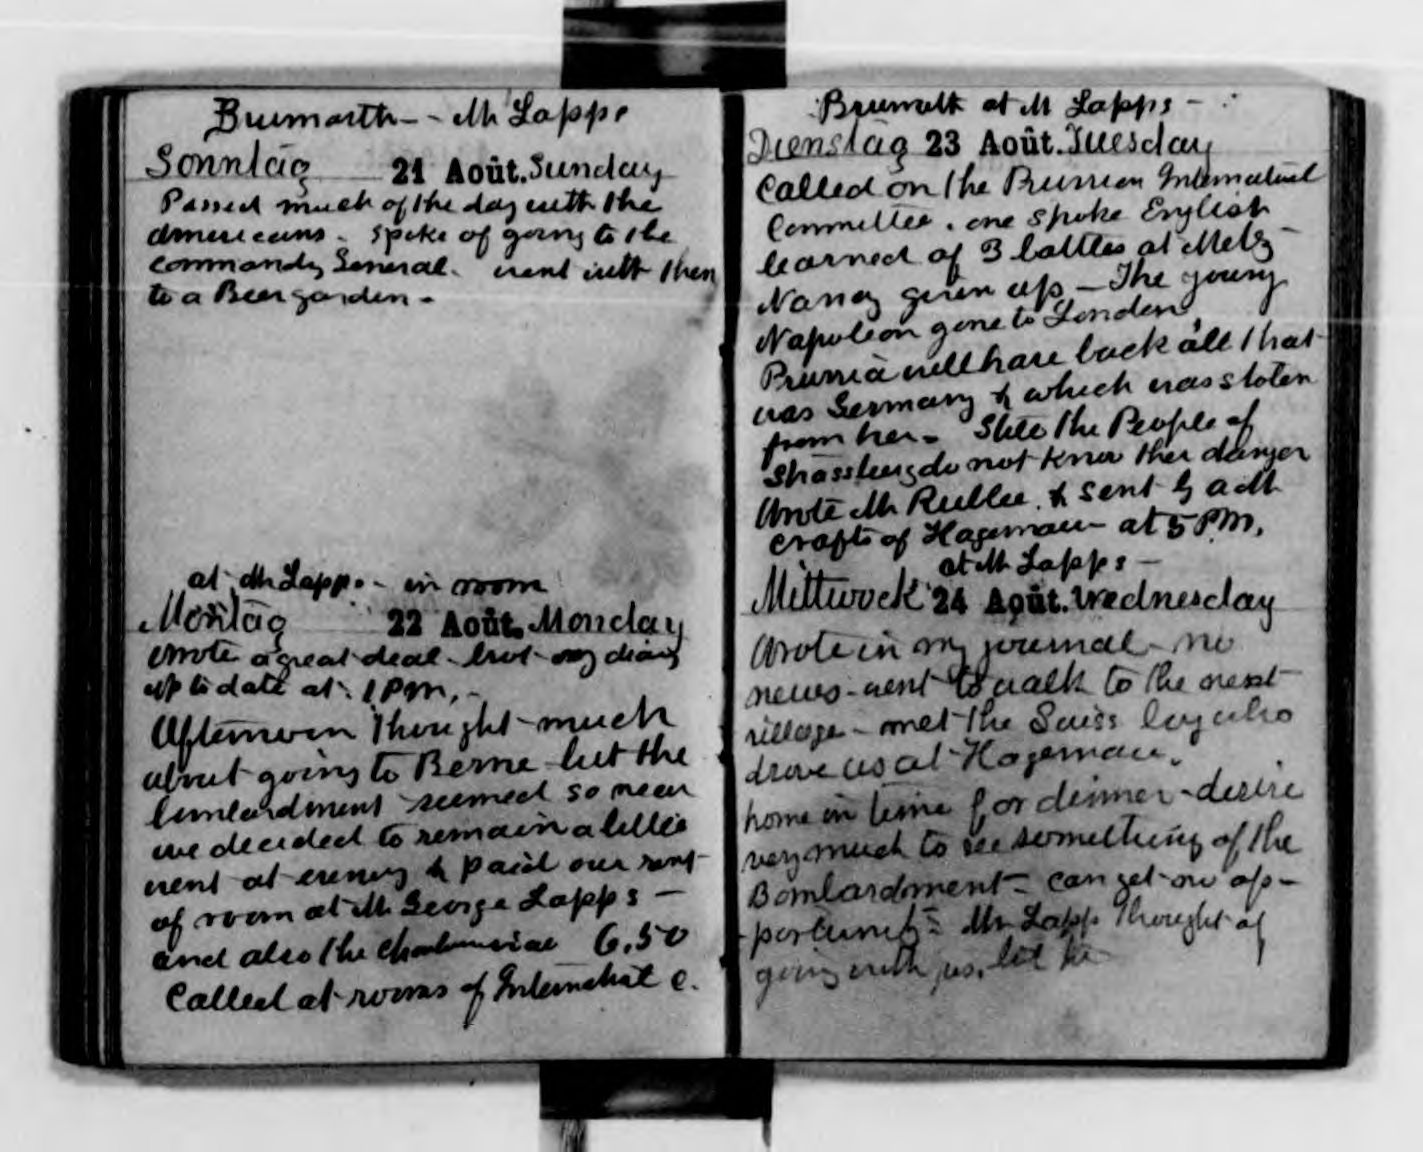 Brumarth - - Mr Lapps
Sonntag 21 Août. Sunday
Passed much of the day with the
Americans - spoke of going to the
Commandg General. went with them
to a Beer garden -
at Mr Lapps - in room
Montag 22 Août. Monday
Wrote a great deal - brot my diary
up to date at 1 PM, -
Afternoon thought much
about going to Berne but the
bombardment seemed so near
we decided to remain a little
went at evening & paid our rent
of room at Mr George Lapps -
and also the 6,50
Called at rooms of Internat C.
Brumath at M Lapps -
Dienstag 23 Août. Tuesday
Called on the Prussian International
Committee. one spoke English
learned of 3 battles at Metz -
Nancy given up - The young
Napoleon gone to London,
Prussia will have back all that
was Germany & which was stolen
from her - State the People of
Strassburg do not know ther danger
Wrote Mr & sent by a Mr
Crafts of Hagenau - at 5 PM.
at M Lapps -
Mittwock 24 Août. Wednesday
Wrote in my journal - no
news - went to walk to the next
village - met the Swiss boy who
drove us at Hagenau.
home in time for dinner - desire
very much to see something of the
Bombardment - can get no op-
portunity - Mr Lapp thought of
going with us, but he